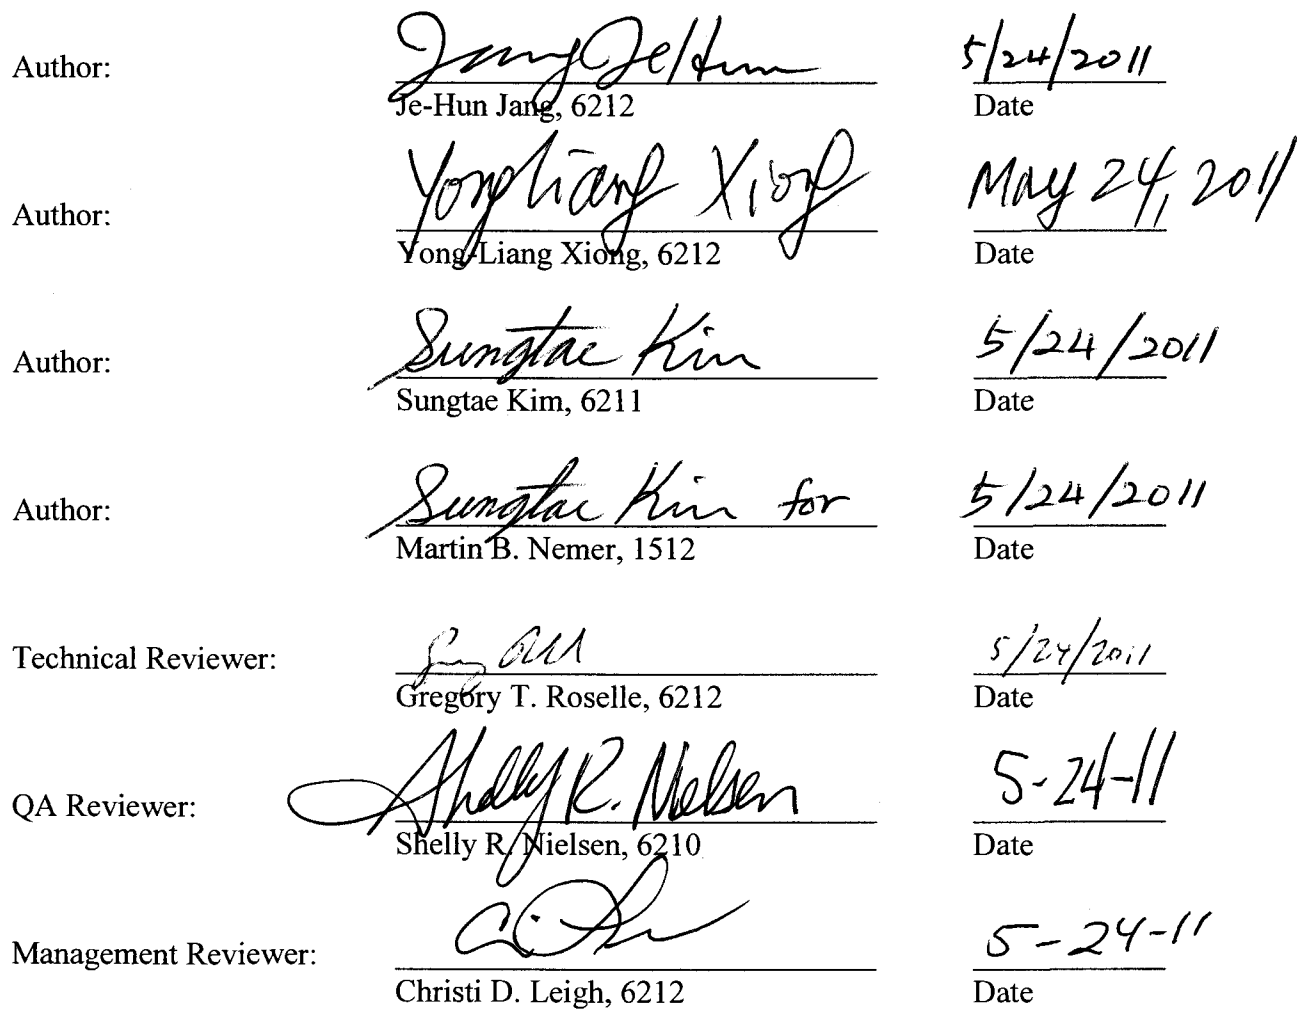 Author: Jang JeHun 5/24/2011
Je-Hun Jang, 6212 Date
Author: Yongliang Xiong May 24, 2011
Yong-Liang Xiong, 6212 Date
Author: Sungtae Kim 5/24/2011
Sungtae Kim, 6211 Date
Author: Sungtae Kim for 5/24/2011
Martin B. Nemer, 1512 Date
Technical Reviewer: 5/24/2011
Gregory T. Roselle, 6212 Date
QA Reviewer: Shelly R. Nielsen 5-24-11
Shelly R. Nielsen, 6210 Date
Management Reviewer: 5-24-11
Christi D. Leigh, 6212 Date